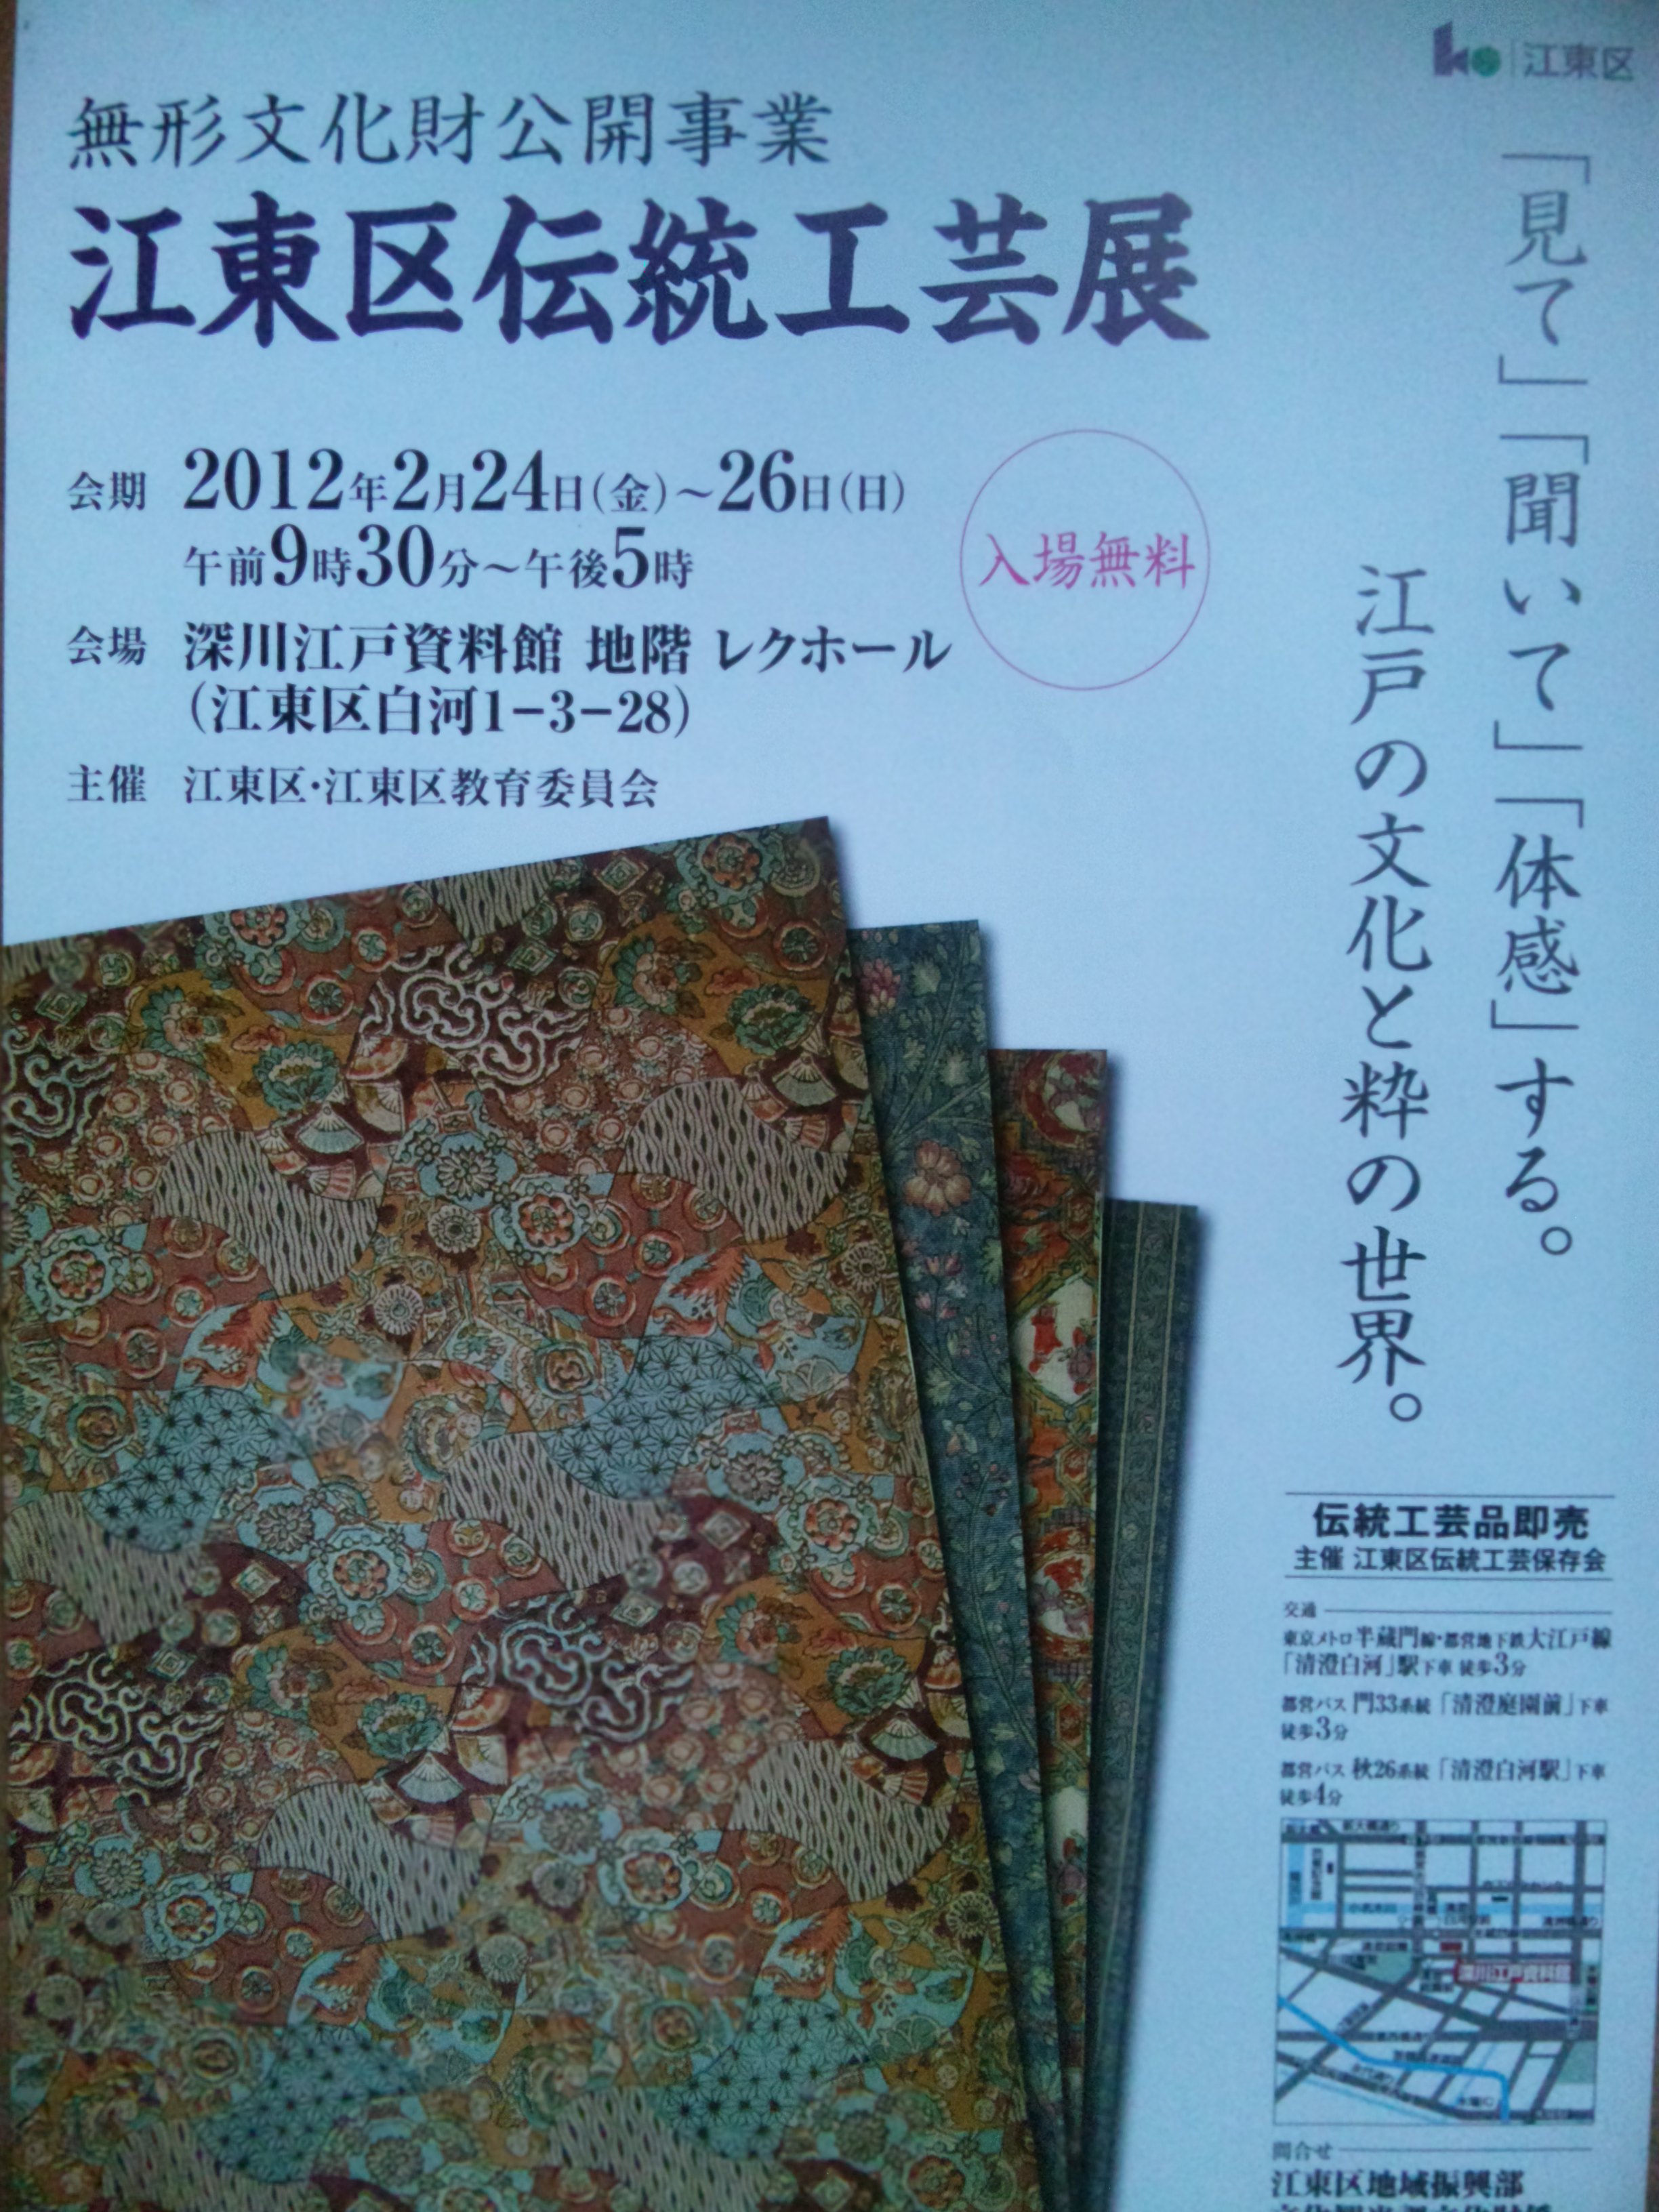 江東区
無形文化財公開事業
江東区伝統工芸展
会期 2012年2月24日(金)～26日(日)
午前9時30分～午後5時
入場無料
会場 深川江戸資料館 地階 レクホール
(江東区白河1-3-28)
主催 江東区・江東区教育委員会
「見て」「聞いて」「体感」する。
江戸の文化と粋の世界。
伝統工芸品即売
主催 江東区伝統工芸保存会
交通
東京メトロ半蔵門線・都営地下鉄大江戸線
「清澄白河」駅下車 徒歩3分
都営バス 門33系統「清澄庭園前」下車
徒歩3分
都営バス 秋26系統「清澄白河駅」下車
徒歩4分
深川江戸資料館
問合せ
江東区地域振興部